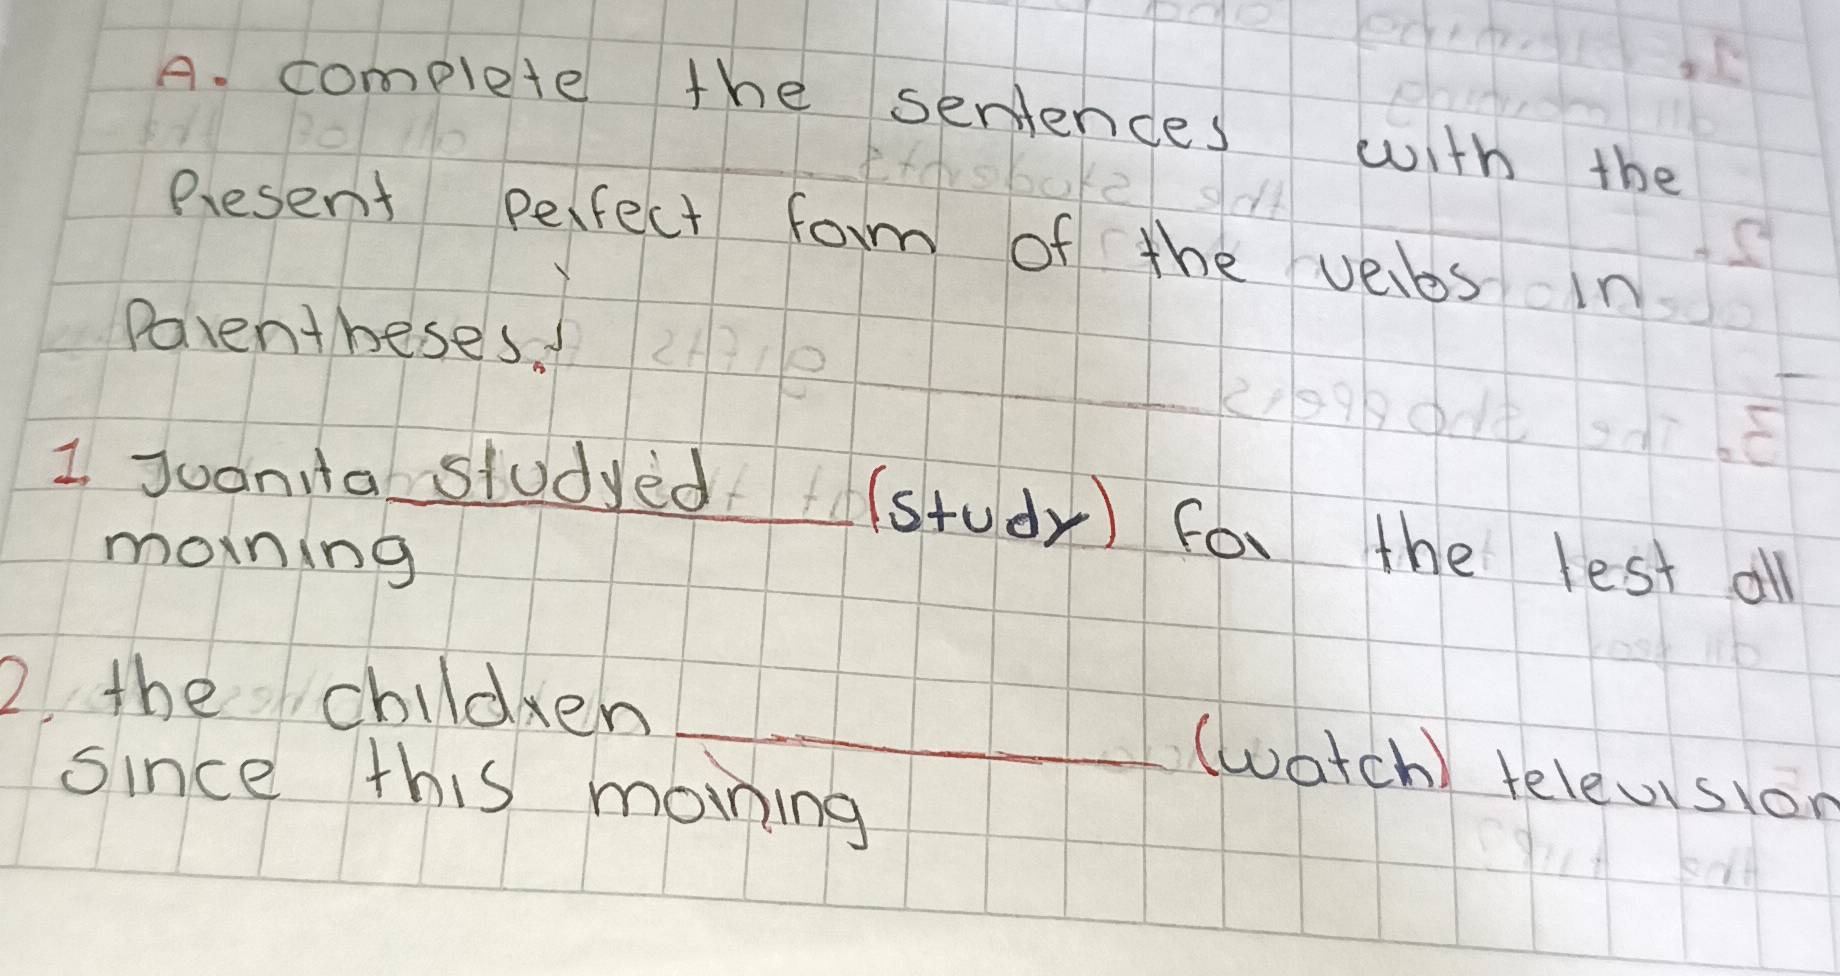 A. complete the sentences with the
Present perfect form of the verbs in
Parentheses.
1. Juanita studyed (study) for the test all
morning
2. the children ________ (watch) television
since this morning